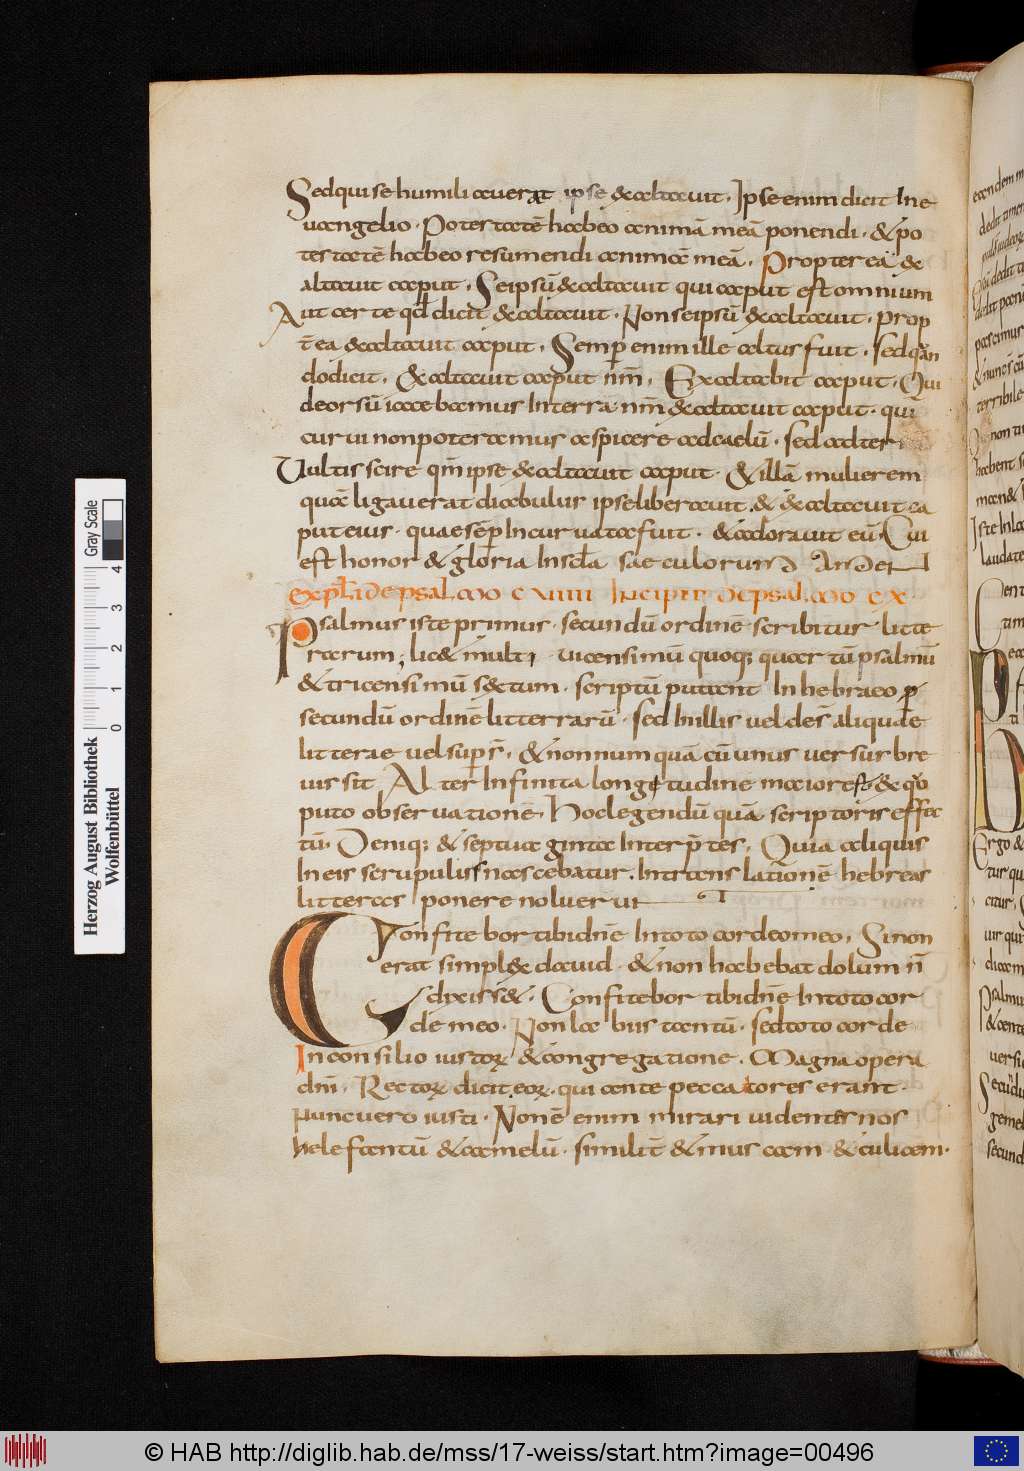 Sed qui se humiliauerat ipse exaltauit. Ipse enim dicit In e
uangelio. Potestatē habeo animā meā ponendi. & po
testatē habeo resumendi animā meā. Propter eā ex
altauit caput. Seipsū exaltauit qui caput est omnium
Aut certe qd dicit exaltauit. Non seipsū exaltauit. prop
t̄ ea exaltauit caput. Semp enim ille altus fuit. sed qān
do dicit. Exaltauit caput nr̄m. Exaltabit caput. Qui
deorsū iacebamus In terra nr̄m exaltauit caput. qui
curui non poteramus aspicere ad caelū. sed ad ter
Vultis scire qm̄ ipse exaltauit caput. & illā mulierem
quā ligauerat diabulus ipse liberauit. & exaltauit ca
put eius. quae sep Incuruata fuit. & adorauit eū. Cui
est honor & gloria In scl̄a saeculorum amen
expl̄ de psalmo CVIIII Incipit de psalmo CX
Psalmus iste primus. secundū ordinē scribitur litte
rarum; lic& multi uicensimū quoq; quartū psalmū
& tricensimū sextum. scriptū putent In hebraeo p
secundū ordinē litterrarū. sed In illis uel des̄ aliquae
litterae uel sups̄. & nonnumquā cū unus uersus bre
uis sit Alter Infinita longetudine maior est & qō
puto obseruationē. Hoc legendū quā scriptoris effec
tū. Deniq; & septuaginta Interp̄tes. Quia aliquis
In eis scrupulis nascebatur. In translationē hebreas
litteras ponere noluerunt
Confitebor tibi dn̄e In toto corde meo. Si non
erat simplex dauid. & non habebat dolum n̄
dixiss&. Confitebor tibi dn̄e In toto cor
de meo. Non labiis tantū. sed toto corde
In consilio iustorꝝ & congregatione. Magna opera
dn̄i. Rectorꝝ dicit eorꝝ. qui ante peccatores erant.
Nunc uero iusti. Non ē enim mirari uidentes nos
helefantū & camelū. similit̄ & muscam & culicem.
Herzog August Bibliothek
Wolfenbüttel
0 1 2 3 4
Gray Scale
© HAB http://diglib.hab.de/mss/17-weiss/start.htm?image=00496